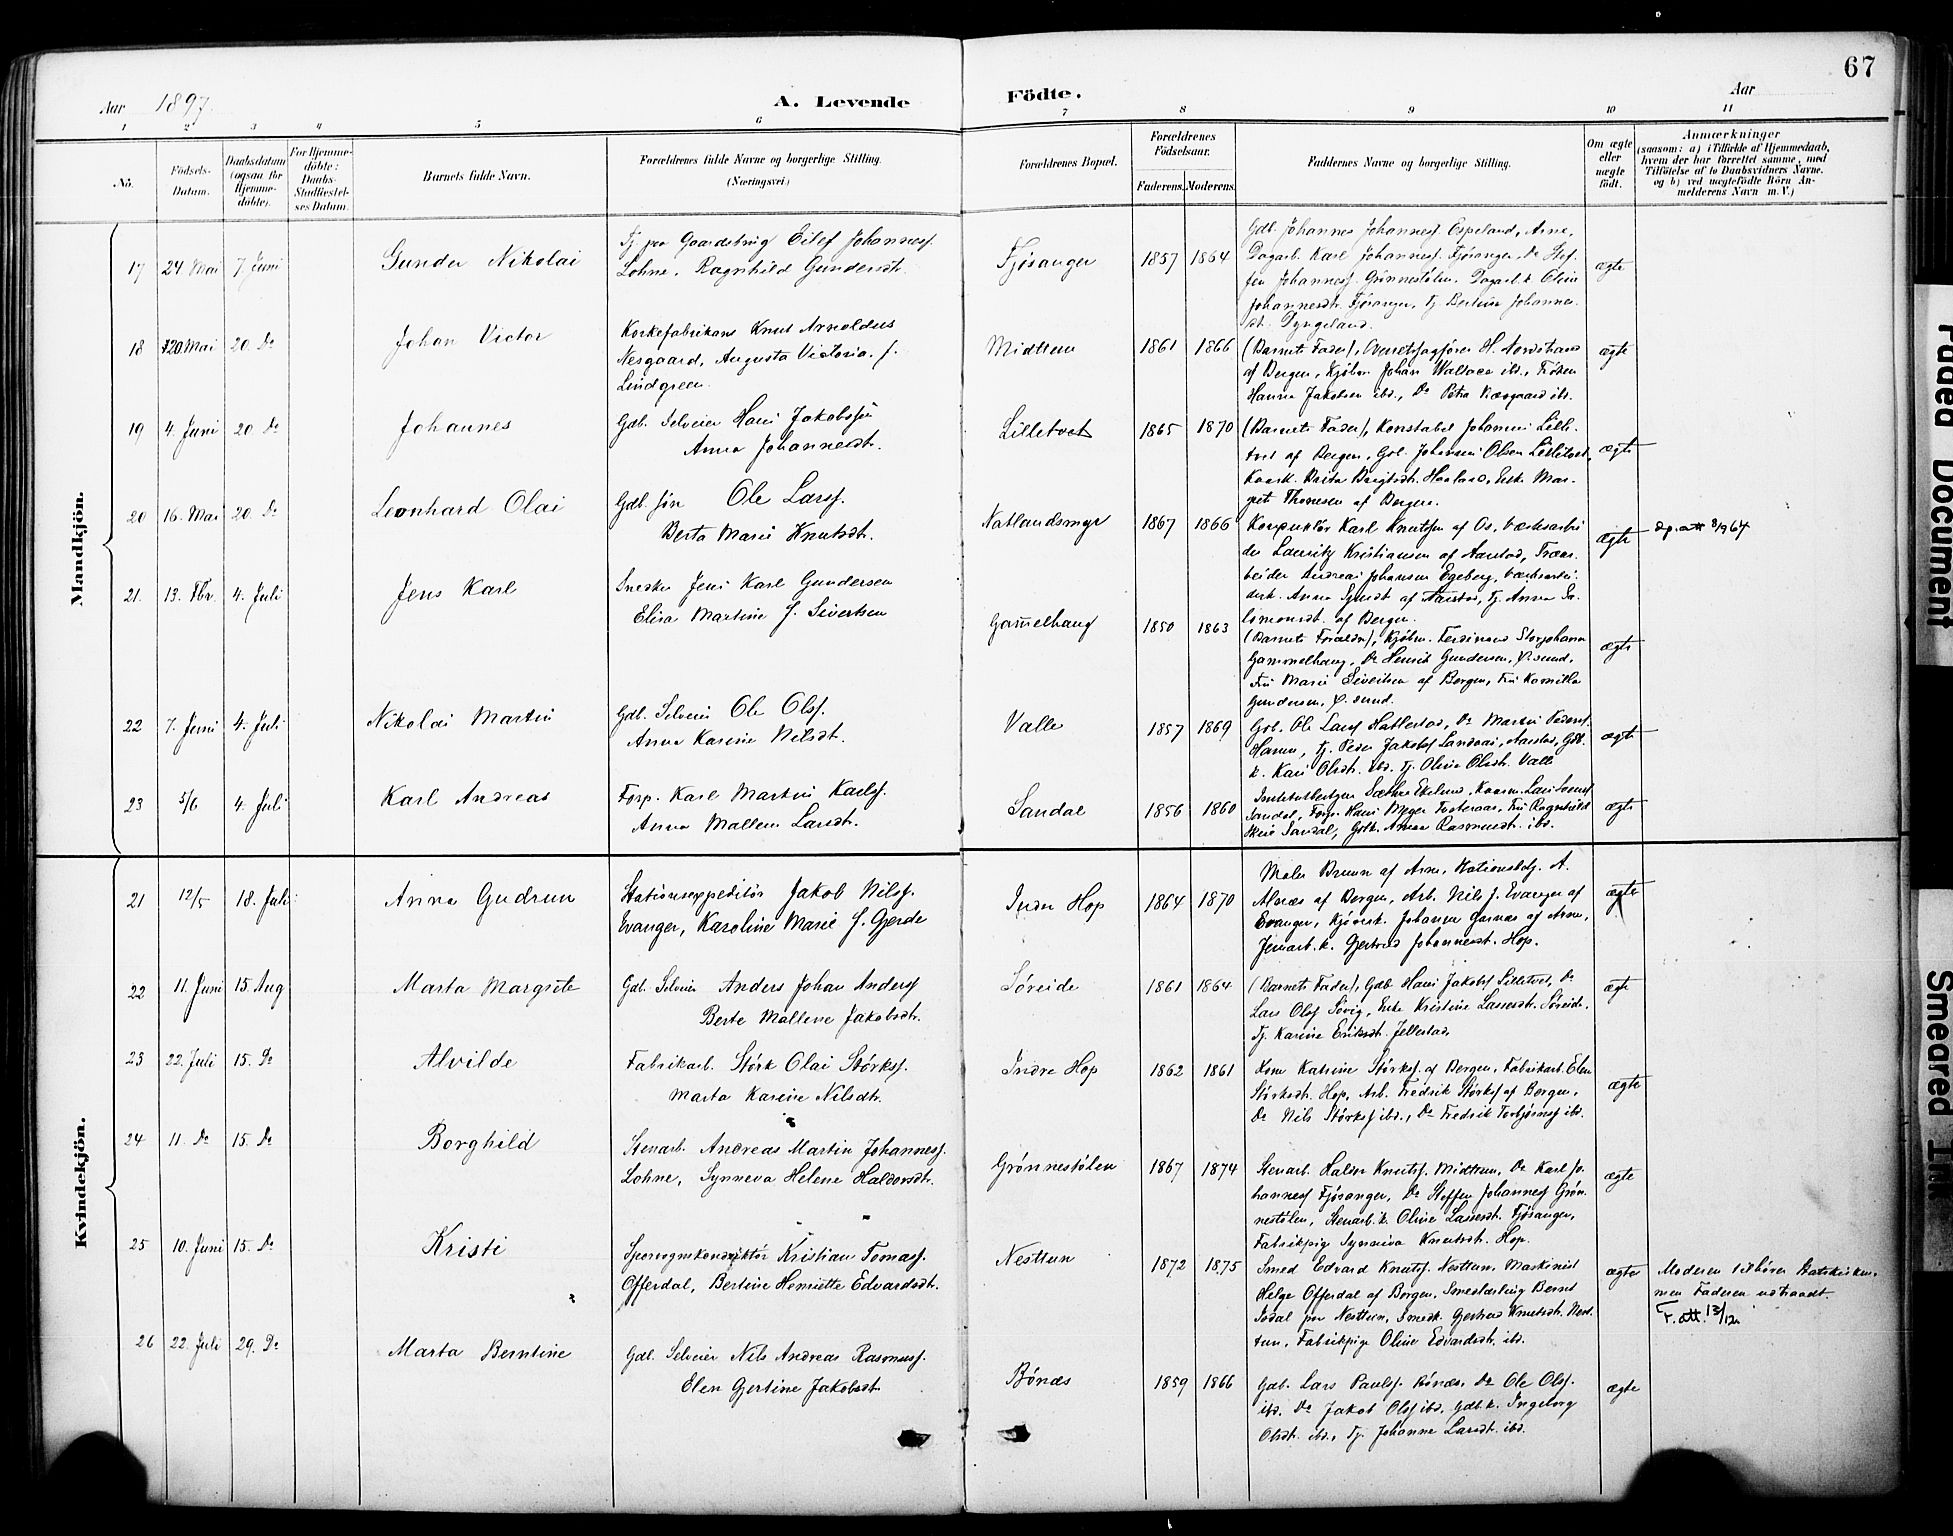 67
Aar 1897.
A. Levende
Födte.
Aar
1 2 3 4 5 6 7 8 9 10 11
No.
Födsels-
Datum.
Daabsdatum
(ogsaa for
Hjemme-
döbte).
For Hjemme-
döbte:
Daabs-
Stadfæstel-
ses Datum.
Barnets fulde Navn.
Forældrenes fulde Navne og borgerlige Stilling.
(Næringsvei.)
Forældrenes Bopæl.
Forældrenes
Födselsaar.
Faderens. Moderens.
Faddernes Navne og borgerlige Stilling.
Om ægte
eller
uægte
født.
Anmærkninger
(saasom: a) i Tilfælde af Hjemmedaab,
hvem der har forrettet samme, med
Tilföielse af to Daabsvidners Navne,
og b) ved uægtefödte Börn An-
melderens Navn m. V.)
Mandkjön.
17 24 Mai 7. Juni Gunder Nikolai
Tj. paa Gaardsbrug Eilef Johannesf.
Lohne, Ragnhild Gundersdt.
Fjøsanger 1857 1864
Gdb. Johannes Johannesf. Espeland, Arne,
Dagarb. Karl Johannesf. Fjøsanger, Do Stef-
fen Johannesf. Grønnestølen, Dagarb.k. Oline
Johannesdt. Fjøsanger, Tj. Bertine Johannes-
dt. Dyngeland.
ægte
18 20 Mai 20. Do Johan Victor
Korkefabrikant Knut Arnoldus
Nesgaard, Augusta Victoria f.
Lindgreen.
Midttun 1861 1866
(Barnets Fader), Overretssagfører H. Nordstrand
af Bergen, Kjøbm. Johan Wallace ibd., Frøken
Hanna Jakobsen ibd., Do Petra Næsgaard ibd.
ægte
19 4. Juni 20. Do Johannes
Gdb. Selveier Hans Jakobsf.
Anna Johannesdt.
Lilletvet 1865 1870
(Barnets Fader), Konstabel Johannes Lille-
tvet af Bergen, Gdb. Johannes Olsen Lilletvet,
Kaark. Brita Hauland, Enke Mar-
gret Thomesen af Bergen.
ægte
20 16. Mai 20. Do Leonhard Olai
Gdb. søn Ole Larsf.
Berta Marie Knutsdt.
Natlandsmyr 1867 1866
Konduktør Karl Knutsen af Os, Værksarbei
der Lauritz Kristiansen af Aarstad, Træar-
beider Andreas Johansen Egeberg, Værksarbei-
derk. Anna af Aarstad, Tj. Anna Sa-
lomonsdt. af Bergen.
ægte
dp. att 8/9 64
21. 13. Fbr. 4. Juli Jens Karl
Snedker Jens Karl Gundersen
Elisa Martine f. Sivertsen
Gammelhaug 1850 1863
(Barnets Forældre), Kjøbm. Ferdinand Storjohann
Gammelhaug, Do Henrik Gundersen, Ø.sund,
Fru Marie Sivertsen af Bergen, Fru Kamilla
Gundersen, Ø.sund.
ægte
22 7. Juni 4. Juli Nikolai Martin
Gdb. Selveier Ole Olsf.
Anna Karine Nilsdt.
Valle 1857 1869
Gdb. Ole Larsf. Hatlestad, Do Martin Pedersf.
Haram, Tj. Peder Jakobsf. Landaas, Aarstad, Gdb.
k. Kari Olsdt. ibd. Tj. Oline Olsdt. Valle
ægte
23 5/6 4. Juli Karl Andreas
Forp. Karl Martin Karlsf.
Anna Mallene Larsdt.
Sandal 1856 1860
Institutbestyrer Sæther Ekelund, Kaarm. Lars Larsf.
Sandal, Forp. Hans Meyer, Fru Ragnhild
Skeie Sandal, Gdbk. Anna Rasmusdt. ibd.
ægte
Kvindekjön.
21 12/5 18. Juli Anna Gudrun
Stationsexpeditør Jakob Nilsf.
Evanger, Karoline Marie f. Gjerde
Indre Hop 1864 1870
Maler Bruun af Arne, Stationsbetj. A.
Alvæs af Bergen, Arb. Nils J. Evanger af
Evanger, Kjøbmk. Johanne Garnæs af Arne,
Jernarb.k. Gjertrud Johannesdt. Hop.
ægte
22 11. Juni 15. Aug Marta Margrete
Gdb. Selveier Anders Johan Andersf.
Berte Mallene Jakobsdt.
Søreide 1861 1864
(Barnets Fader), Gdb. Hans Jakobsf. Lilletvet, Do
Lars Olsf. Sørvig, Enke Kristine Lassesdt. Søreide,
Tj. Karine Eriksdt. Jellestad
ægte
23 22. Juli 15. Do Alvilde
Fabrikarb. Størk Olai Størksf.
Marta Karine Nilsdt.
Indre Hop 1862 1861
Kone Katrine Størksf. af Bergen, Fabrikarb. Elen
Størksdt. Hop, Arb. Fredrik Størksf. af Bergen,
Do Nils Størksf. ibd., Do Fredrik Torbjørnsf. ibd.
ægte
24 11. Do 15. Do Borghild
Stenarb. Andreas Martin Johannesf.
Lohne, Synneva Helene Haldorsdt.
Grønnestølen 1867 1874
Stenarb. Haldor Knutsf. Midttun, Do Karl Jo-
hannesf. Fjøsanger, Do Steffen Johannesf. Grøn-
nestølen, Stenarb.k. Oline Lassesdt. Fjøsanger,
Fabrikpig. Synneva Knutsdt. Hop.
ægte
25 10. Juni 15. Do Kristi
Sporvognskonduktør Kristian Tomasf.
Offerdal, Bertine Henriette Edvardsdt.
Nesttun 1872 1875
Smed Edvard Knutsf. Nesttun, Maskinist
Helge Offerdal af Bergen, Smedlærling Bernt
Isdal paa Nesttun, Smedk. Gjertrud Knutsdt. Nest-
tun, Fabrikpige Oline Edvardsdt. ibd.
ægte
Moderen tilhører Statskirken,
men Faderen udtraadt.
F. att. 13/12
26 22. Juli 29. Do Marta Berntine
Gdb. Selveier Nils Andreas Rasmusf.
Elen Gjertine Jakobsdt.
Bønæs 1859 1866
Gdb. Lars Paulsf. Bønæs, Do Ole Olsf.
ibd. Do Jakob Olsf. ibd. Gdb.k. Ingeborg
Olsdt. ibd., Tj. Johanne Larsdt. ibd.
ægte
Faded Document
Smeared Ink